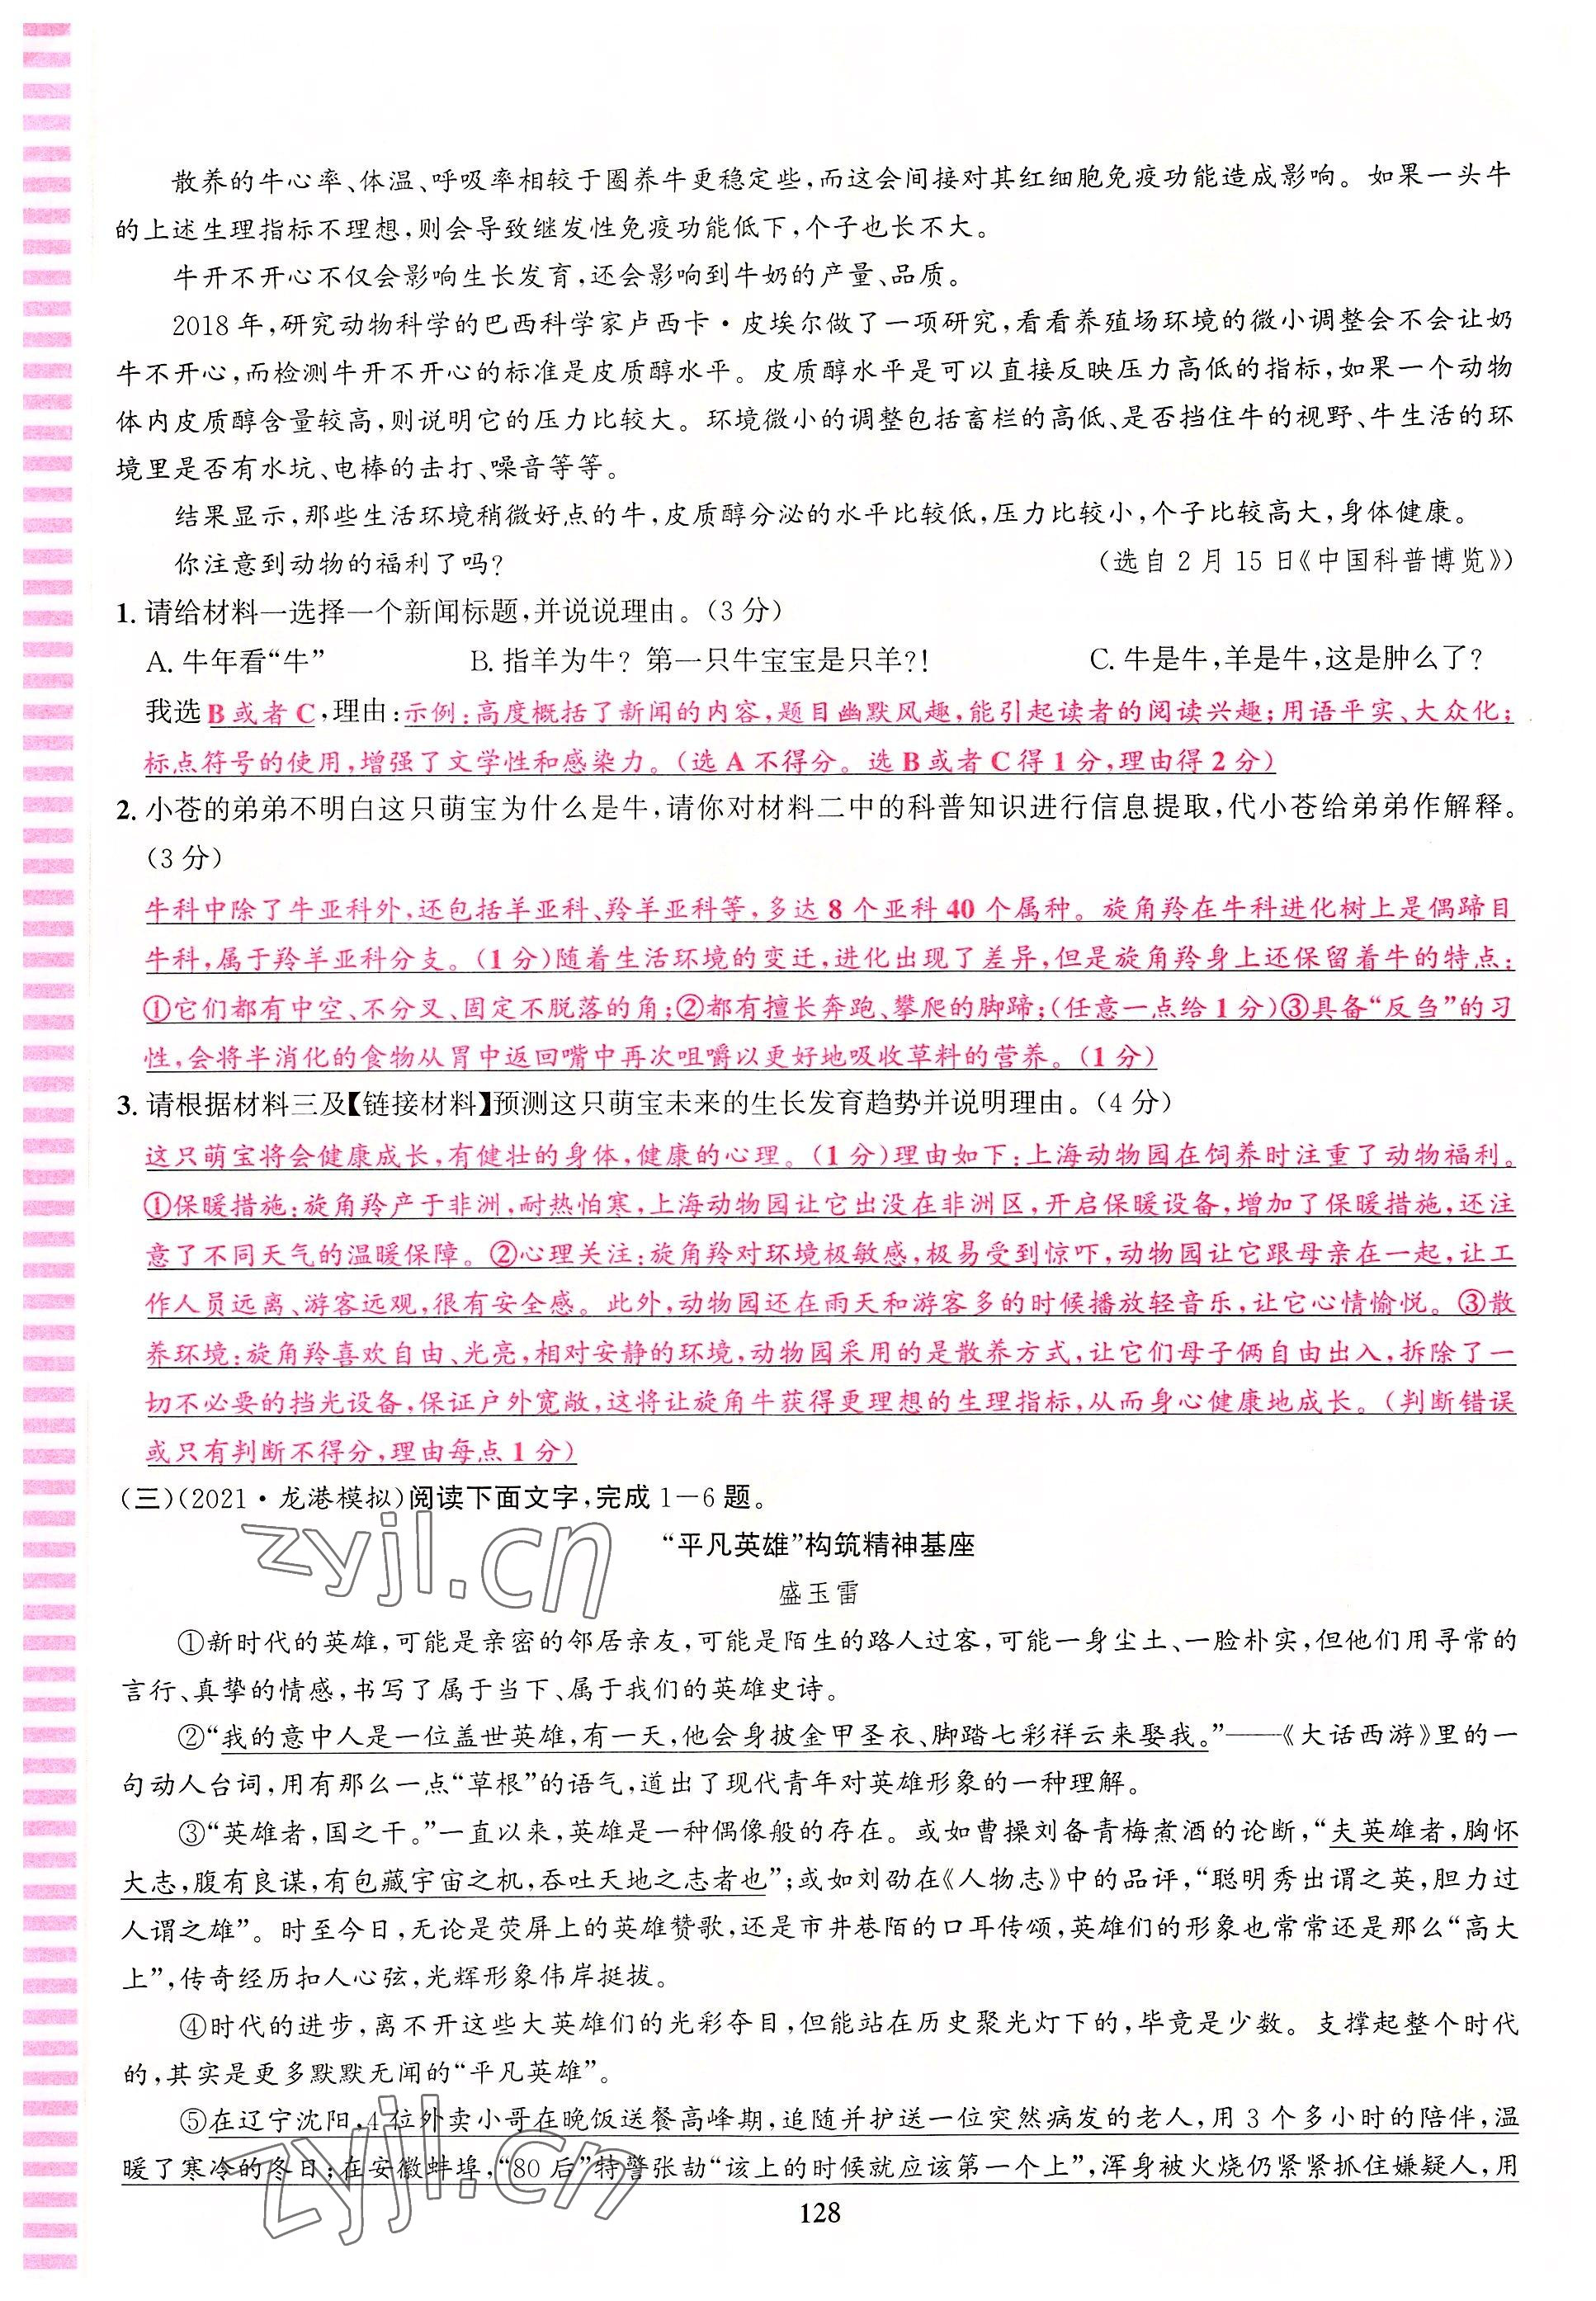 散养的牛心率、体温、呼吸率相较于圈养牛更稳定些，而这会间接对其红细胞免疫功能造成影响。如果一头牛
的上述生理指标不理想，则会导致继发性免疫功能低下，个子也长不大。
牛开不开心不仅会影响生长发育，还会影响到牛奶的产量、品质。
2018年，研究动物科学的巴西科学家卢西卡·皮埃尔做了一项研究，看看养殖场环境的微小调整会不会让奶
牛不开心，而检测牛开不开心的标准是皮质醇水平。皮质醇水平是可以直接反映压力高低的指标，如果一个动物
体内皮质醇含量较高，则说明它的压力比较大。环境微小的调整包括畜栏的高低、是否挡住牛的视野、牛生活的环
境里是否有水坑、电棒的击打、噪音等等。
结果显示，那些生活环境稍微好点的牛，皮质醇分泌的水平比较低，压力比较小，个子比较高大，身体健康。
你注意到动物的福利了吗？ （选自2月15日《中国科普博览》）
1. 请给材料一选择一个新闻标题，并说说理由。（3分）
A. 牛年看“牛” B. 指羊为牛？第一只牛宝宝是只羊？！ C. 牛是牛，羊是牛，这是肿么了？
我选B或者C，理由：示例：高度概括了新闻的内容，题目幽默风趣，能引起读者的阅读兴趣；用语平实、大众化；
标点符号的使用，增强了文学性和感染力。（选A不得分。选B或者C得1分，理由得2分）
2. 小苍的弟弟不明白这只萌宝为什么是牛，请你对材料二中的科普知识进行信息提取，代小苍给弟弟作解释。
（3分）
牛科中除了牛亚科外，还包括羊亚科、羚羊亚科等，多达8个亚科40个属种。旋角羚在牛科进化树上是偶蹄目
牛科，属于羚羊亚科分支。（1分）随着生活环境的变迁，进化出现了差异，但是旋角羚身上还保留着牛的特点：
①它们都有中空、不分叉、固定不脱落的角；②都有擅长奔跑、攀爬的脚蹄；（任意一点给1分）③具备“反刍”的习
性，会将半消化的食物从胃中返回嘴中再次咀嚼以更好地吸收草料的营养。（1分）
3. 请根据材料三及【链接材料】预测这只萌宝未来的生长发育趋势并说明理由。（4分）
这只萌宝将会健康成长，有健壮的身体，健康的心理。（1分）理由如下：上海动物园在饲养时注重了动物福利。
①保暖措施：旋角羚产于非洲，耐热怕寒，上海动物园让它出没在非洲区，开启保暖设备，增加了保暖措施，还注
意了不同天气的温暖保障。②心理关注：旋角羚对环境极敏感，极易受到惊吓，动物园让它跟母亲在一起，让工
作人员远离、游客远观，很有安全感。此外，动物园还在雨天和游客多的时候播放轻音乐，让它心情愉悦。③散
养环境：旋角羚喜欢自由、光亮，相对安静的环境，动物园采用的是散养方式，让它们母子俩自由出入，拆除了一
切不必要的挡光设备，保证户外宽敞，这将让旋角牛获得更理想的生理指标，从而身心健康地成长。（判断错误
或只有判断不得分，理由每点1分）
（三）（2021·龙港模拟）阅读下面文字，完成1—6题。
“平凡英雄”构筑精神基座
盛玉雷
①新时代的英雄，可能是亲密的邻居亲友，可能是陌生的路人过客，可能一身尘土、一脸朴实，但他们用寻常的
言行、真挚的情感，书写了属于当下、属于我们的英雄史诗。
②“我的意中人是一位盖世英雄，有一天，他会身披金甲圣衣、脚踏七彩祥云来娶我。”——《大话西游》里的一
句动人台词，用有那么一点“草根”的语气，道出了现代青年对英雄形象的一种理解。
③“英雄者，国之干。”一直以来，英雄是一种偶像般的存在。或如曹操刘备青梅煮酒的论断，“夫英雄者，胸怀
大志，腹有良谋，有包藏宇宙之机，吞吐天地之志者也”；或如刘劭在《人物志》中的品评，“聪明秀出谓之英，胆力过
人谓之雄”。时至今日，无论是荧屏上的英雄赞歌，还是市井巷陌的口耳传颂，英雄们的形象也常常还是那么“高大
上”，传奇经历扣人心弦，光辉形象伟岸挺拔。
④时代的进步，离不开这些大英雄们的光彩夺目，但能站在历史聚光灯下的，毕竟是少数。支撑起整个时代
的，其实是更多默默无闻的“平凡英雄”。
⑤在辽宁沈阳，4位外卖小哥在晚饭送餐高峰期，追随并护送一位突然病发的老人，用3个多小时的陪伴，温
暖了寒冷的冬日；在安徽蚌埠，“80后”特警张劼“该上的时候就应该第一个上”，浑身被火烧仍紧紧抓住嫌疑人，用
128
zyjl.cn
zyjl.cn